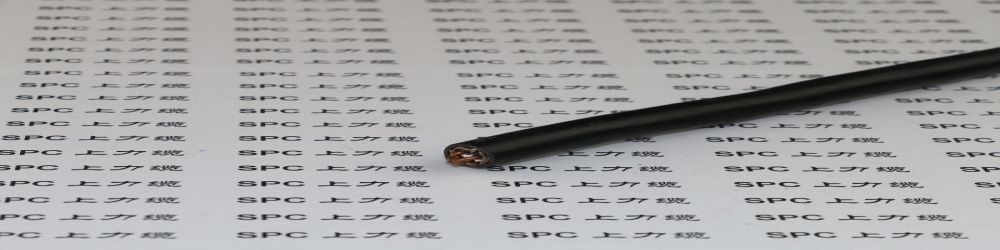 SPC 上力缆 SPC 上力缆 SPC 上力缆 SPC 上力缆 SPC 上力缆
SPC 上力缆 SPC 上力缆 SPC 上力缆 SPC 上力缆 SPC 上力缆
SPC 上力缆 SPC 上力缆 SPC 上力缆 SPC 上力缆 SPC 上力缆
SPC 上力缆 SPC 上力缆 SPC 上力缆 SPC 上力缆 SPC 上力缆
SPC 上力缆 SPC 上力缆 SPC 上力缆 SPC 上力缆
SPC 上力缆 SPC 上力缆 SPC 上力缆 SPC 上力缆
SPC 上力缆 SPC 上力缆 SPC 上力缆
SPC 上力缆 SPC 上力缆 SPC 上力缆
SPC 上力缆 SPC 上力缆 SPC
SPC 上力缆 SPC 上力缆 上力缆
SPC 上力缆 SPC 上力缆 SPC 上力缆
SPC 上力缆 SPC 上力缆 SPC 上力缆 SPC 上力缆
SPC 上力缆 SPC 上力缆 SPC 上力缆 SPC 上力缆
SPC 上力缆 SPC 上力缆 SPC 上力缆
SPC 上力缆 SPC 上力缆 SPC 上力缆
SPC 上力缆 SPC 上力缆 SPC 上力缆